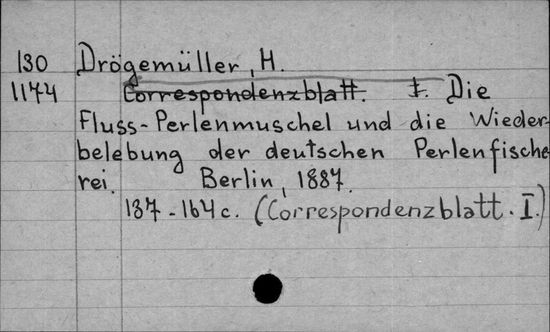 130 Drögemüller, H.
1174 Correspondenzblatt. I. Die
Fluss-Perlenmuschel und die Wieder-
belebung der deutschen Perlenfische
rei. Berlin, 1887.
137-164c. (Correspondenzblatt. I.)